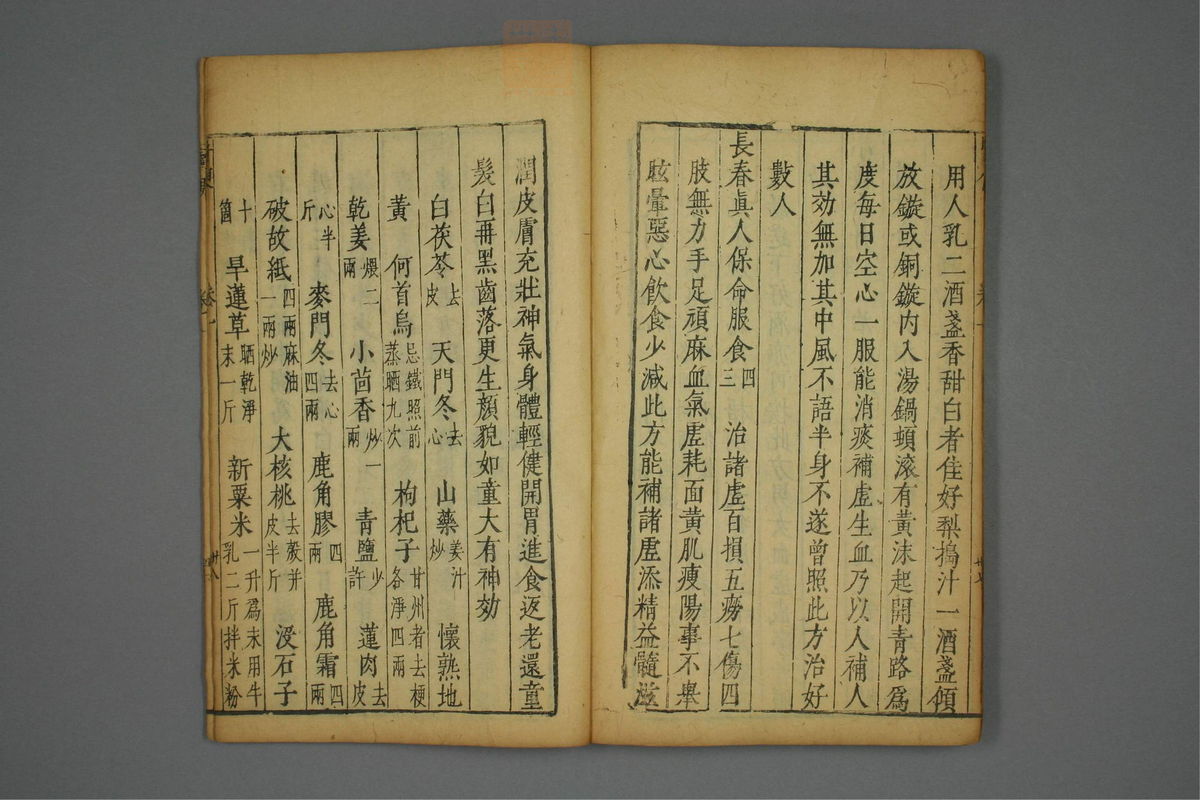 用人乳二酒盞香甜白者佳好梨搗汁一酒盞傾
放鏇或銅鏇内入湯鍋頓滚有黃沫起開青路爲
度每日空心一服能消痰補虛生血乃以人補人
其効無加其中風不語半身不遂曾照此方治好
數人
長春真人保命服食四三 治諸虛百損五癆七傷四
肢無力手足頑麻血氣虛耗面黃肌瘦陽事不舉
眩暈惡心飲食少減此方能補諸虛添精益髓滋
潤皮膚充壯神氣身體輕健開胃進食返老還童
髮白再黑齒落更生顏貌如童大有神効
白茯苓去皮 天門冬去心 山藥姜汁炒 懷熟地
黃 何首烏忌鐵照前蒸晒九次 枸杞子甘州者去梗各淨四兩
乾姜煨二兩 小茴香炒一兩 青鹽少許 蓮肉去皮
心半斤 麥門冬去心四兩 鹿角膠四兩 鹿角霜四兩
破故紙四兩麻油一兩炒 大核桃去殼并皮半斤 沒石子
十箇 旱蓮草晒乾淨末一斤 新粟米一升爲末用牛乳二斤拌米粉